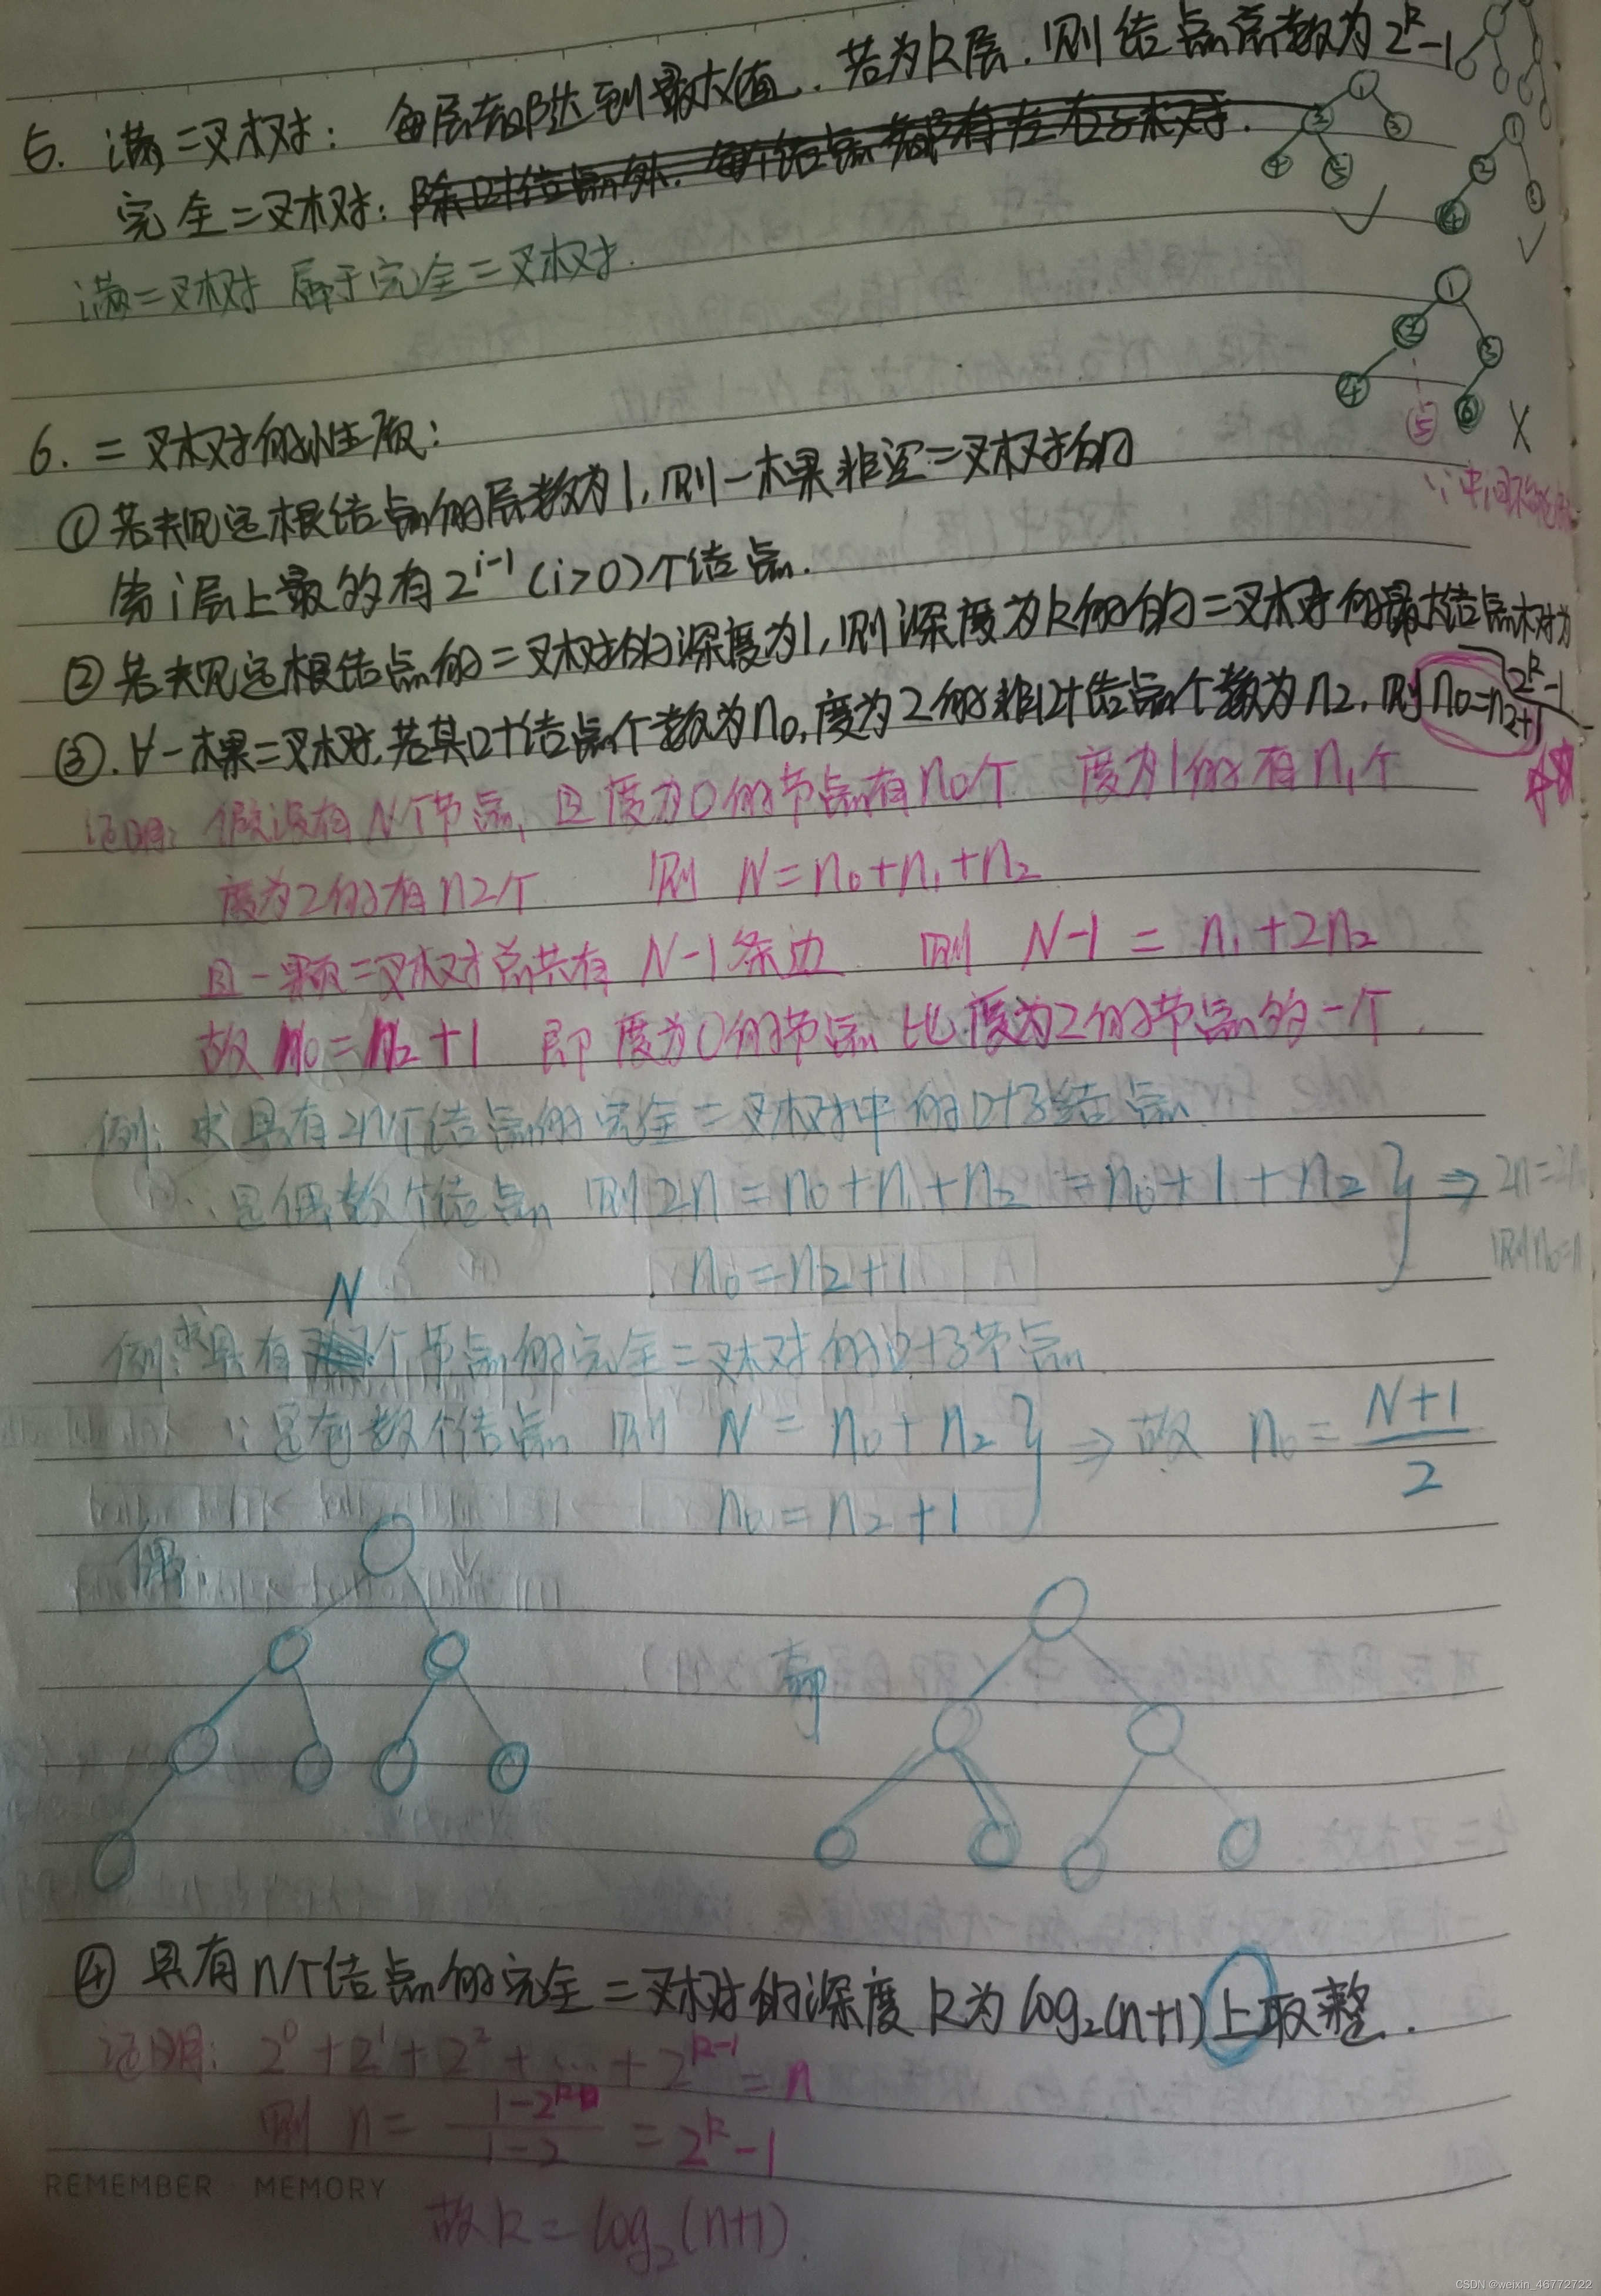 5. 满二叉树： 每层都达到最大值. 若为k层, 则结点总数为2^k-1
完全二叉树： 除叶结点外, 每个结点都有左右子树.
满二叉树 属于完全二叉树.
6. 二叉树的性质：
① 若规定根结点的层数为1, 则一棵非空二叉树的
第i层上最多有2^(i-1) (i>0)个结点.
② 若规定根结点的二叉树的深度为1, 则深度为k的的二叉树的最大结点树为
2^k-1
③. ∀一棵二叉树, 若其叶结点个数为n0, 度为2的非叶结点个数为n2, 则n0=n2+1
证明: 假设有N个节点, 且度为0的节点有n0个 度为1的有n1个
度为2的有n2个 则 N=n0+n1+n2
且一颗二叉树总共有 N-1条边 则 N-1 = n1+2n2
故 n0=n2+1 即 度为0的节点 比度为2的节点多一个.
例: 求具有2n个结点的完全二叉树中的叶子结点
∵是偶数个结点 则2n=n0+n1+n2=n0+1+n2 } ⇒ 2n=2n0
n0=n2+1 则n0=n
N
例:求具有个节点的完全二叉树的叶子节点
∵是奇数个结点 则 N = n0+n2 } ⇒ 故 n0 = (N+1)/2
n0 = n2+1
偶:
奇
④ 具有n个结点的完全二叉树的深度k为log2(n+1)上取整.
证明: 2^0+2^1+2^2+...+2^(k-1)=n
则 n = (1-2^k)/(1-2) = 2^k-1
故k=log2(n+1).
REMEMBER MEMORY
① ② ③ ④ ⑤
√
① ② ③ ④
√
① ② ③ ④ ⑤ ⑥
×
CSDN @weixin_46772722